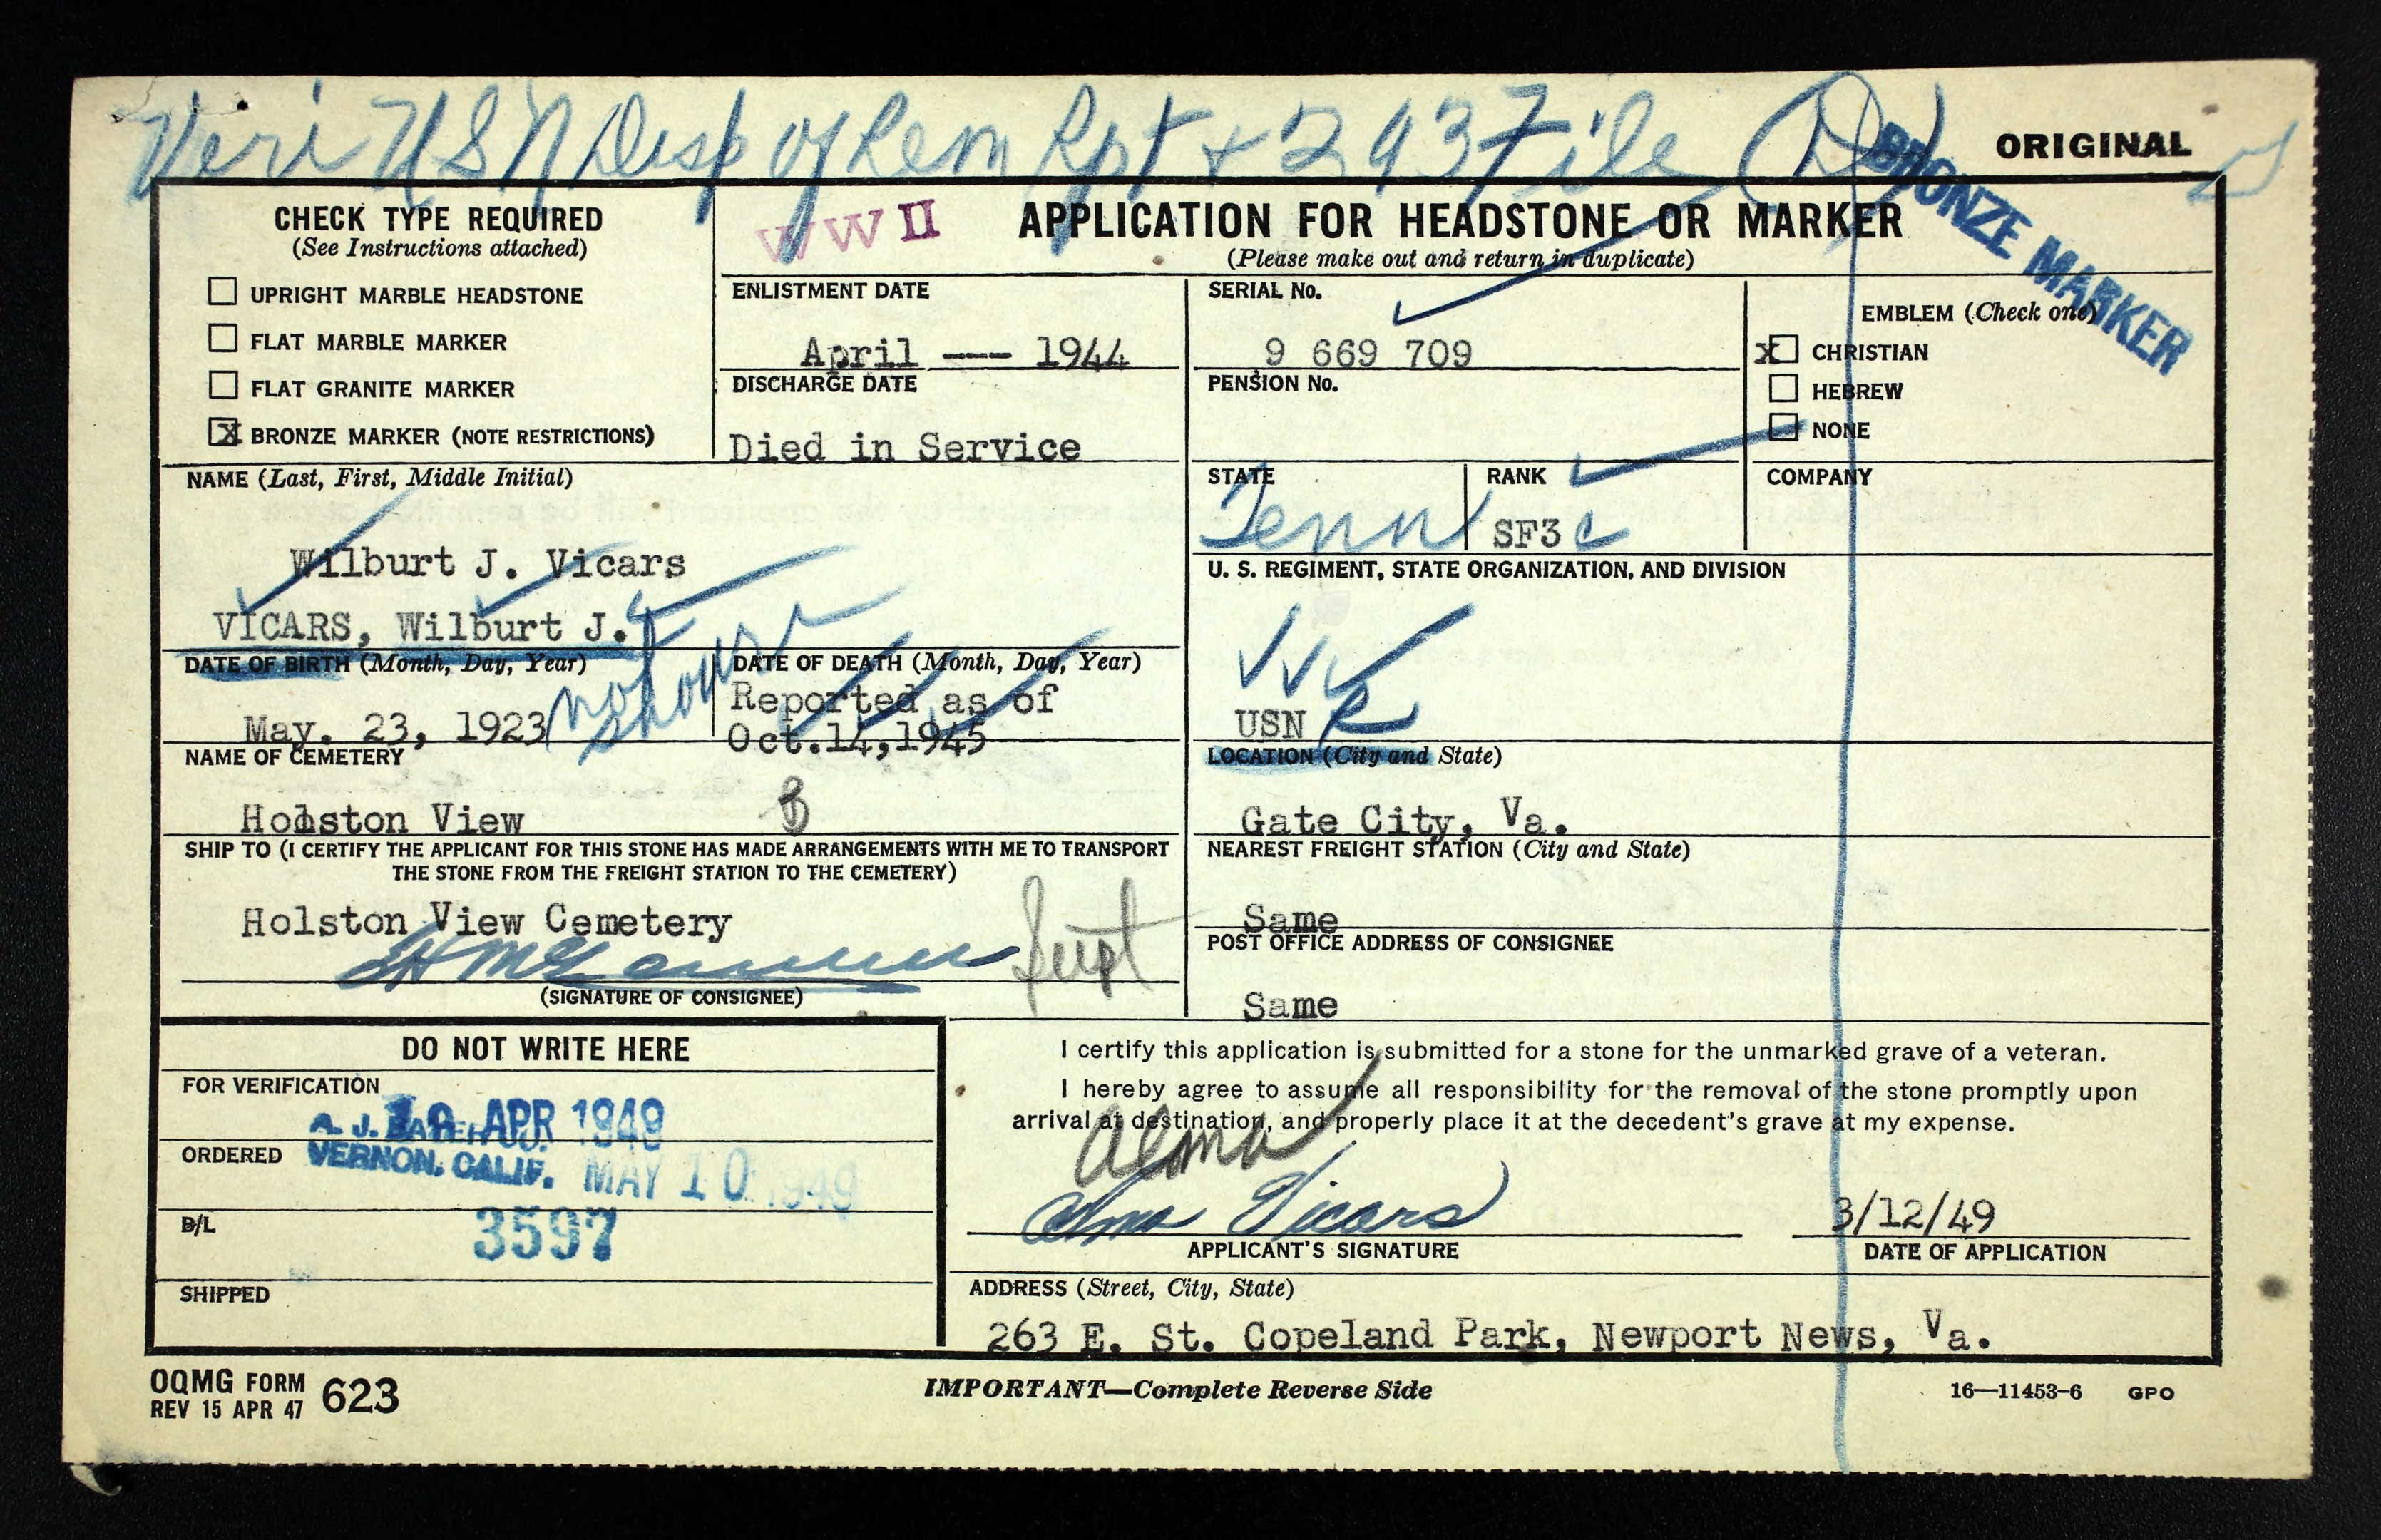 Veri USN Disp of Rem Rpt + 293 File (D)
ORIGINAL
BRONZE MARKER
CHECK TYPE REQUIRED
(See Instructions attached)
☐ UPRIGHT MARBLE HEADSTONE
☐ FLAT MARBLE MARKER
☐ FLAT GRANITE MARKER
☒ BRONZE MARKER (NOTE RESTRICTIONS)
WW II
APPLICATION FOR HEADSTONE OR MARKER
(Please make out and return in duplicate)
ENLISTMENT DATE
April --- 1944
SERIAL No.
9 669 709
EMBLEM (Check one)
x☐ CHRISTIAN
☐ HEBREW
☐ NONE
DISCHARGE DATE
Died in Service
PENSION No.
NAME (Last, First, Middle Initial)
Wilburt J. Vicars
VICARS, Wilburt J.
STATE
Tenn
RANK
SF3 c
COMPANY
U. S. REGIMENT, STATE ORGANIZATION, AND DIVISION
USN R
DATE OF BIRTH (Month, Day, Year)
May. 23, 1923
not shown
DATE OF DEATH (Month, Day, Year)
Reported as of
Oct.14,1945
NAME OF CEMETERY
Holston View
B
LOCATION (City and State)
Gate City, Va.
SHIP TO (I CERTIFY THE APPLICANT FOR THIS STONE HAS MADE ARRANGEMENTS WITH ME TO TRANSPORT
THE STONE FROM THE FREIGHT STATION TO THE CEMETERY)
Holston View Cemetery
Supt
(SIGNATURE OF CONSIGNEE)
NEAREST FREIGHT STATION (City and State)
Same
POST OFFICE ADDRESS OF CONSIGNEE
Same
DO NOT WRITE HERE
FOR VERIFICATION
APR 1949
A. J.
ORDERED
VERNON, CALIF. MAY 10 1949
B/L
3597
SHIPPED
I certify this application is submitted for a stone for the unmarked grave of a veteran.
I hereby agree to assume all responsibility for the removal of the stone promptly upon
arrival at destination, and properly place it at the decedent's grave at my expense.
Alma
Alma Vicars
APPLICANT'S SIGNATURE
3/12/49
DATE OF APPLICATION
ADDRESS (Street, City, State)
263 E. St. Copeland Park, Newport News, Va.
OQMG FORM 623
REV 15 APR 47
IMPORTANT—Complete Reverse Side
16—11453-6 GPO